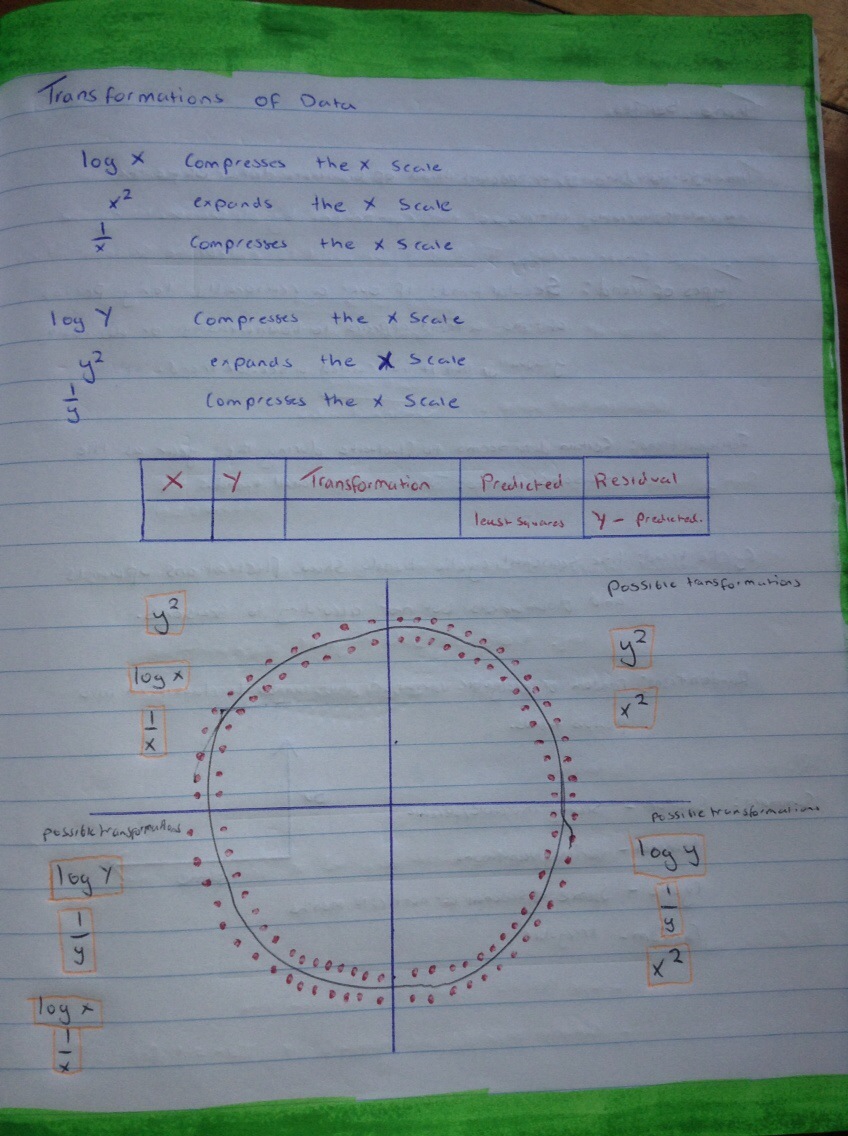 Transformations of Data
log x Compresses the x Scale
x² expands the x Scale
1/x Compresses the x Scale
log Y Compresses the x Scale
y² expands the x Scale
1/y Compresses the x Scale
X Y Transformation Predicted Residual
least squares Y - Predicted.
possible transformations
y²
log x
1/x
y²
x²
possible transformations
log Y
1/y
log x
1/x
possible transformations
log y
1/y
x²